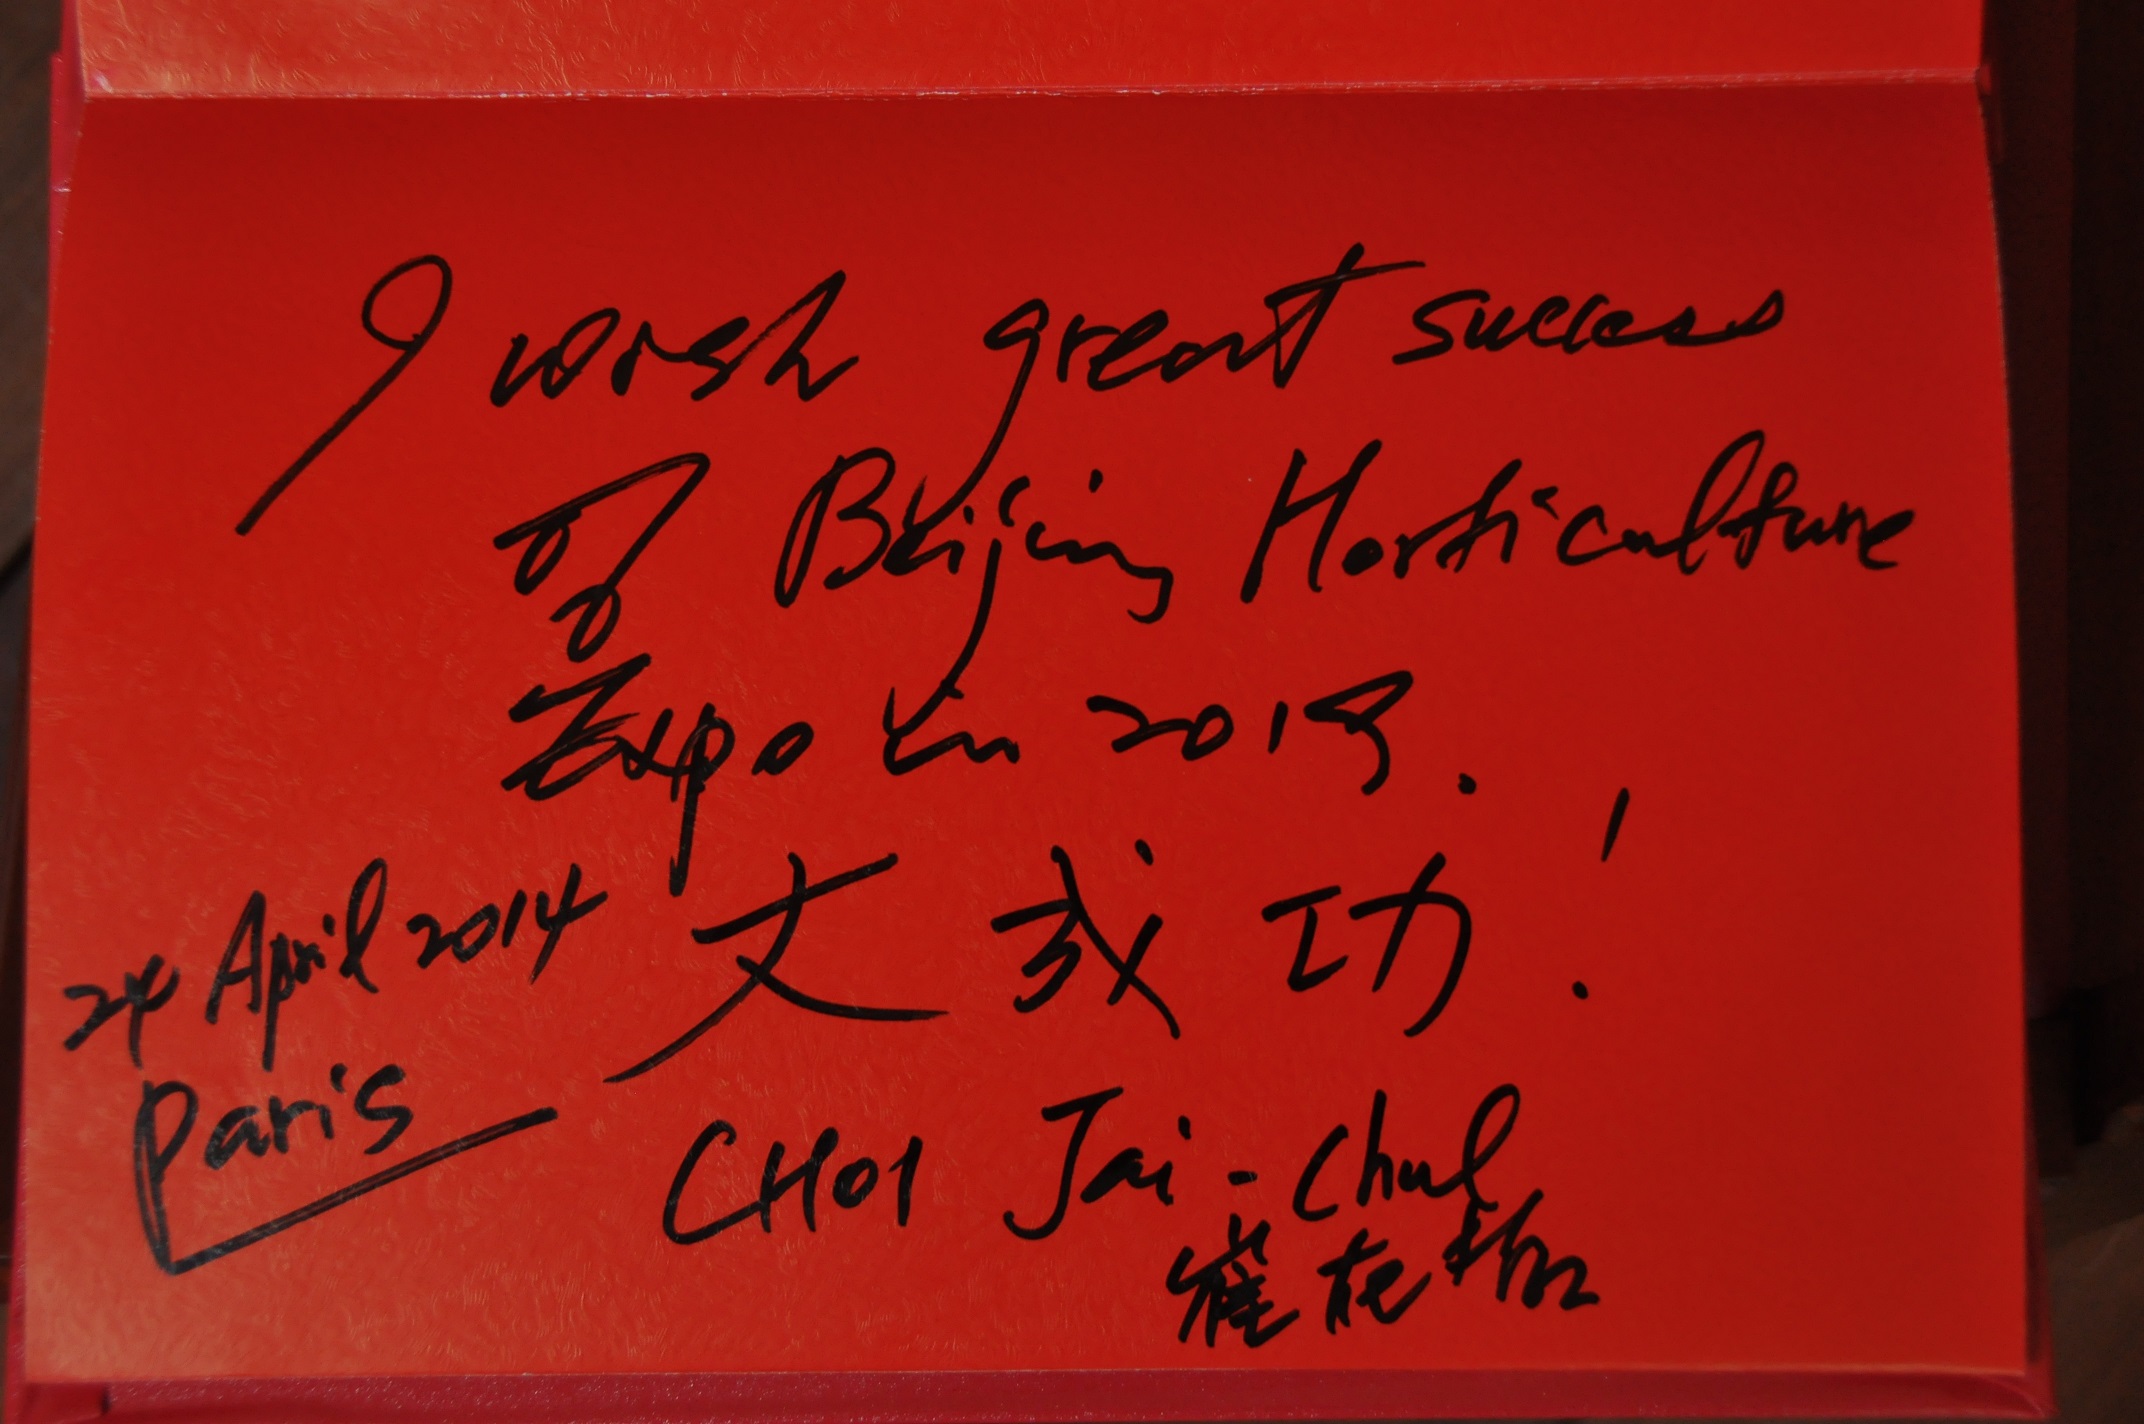 I wish great success
of Beijing Horticulture
Expo in 2019.
大成功!
24 April 2014
Paris
CHOI Jai-Chul
崔在哲